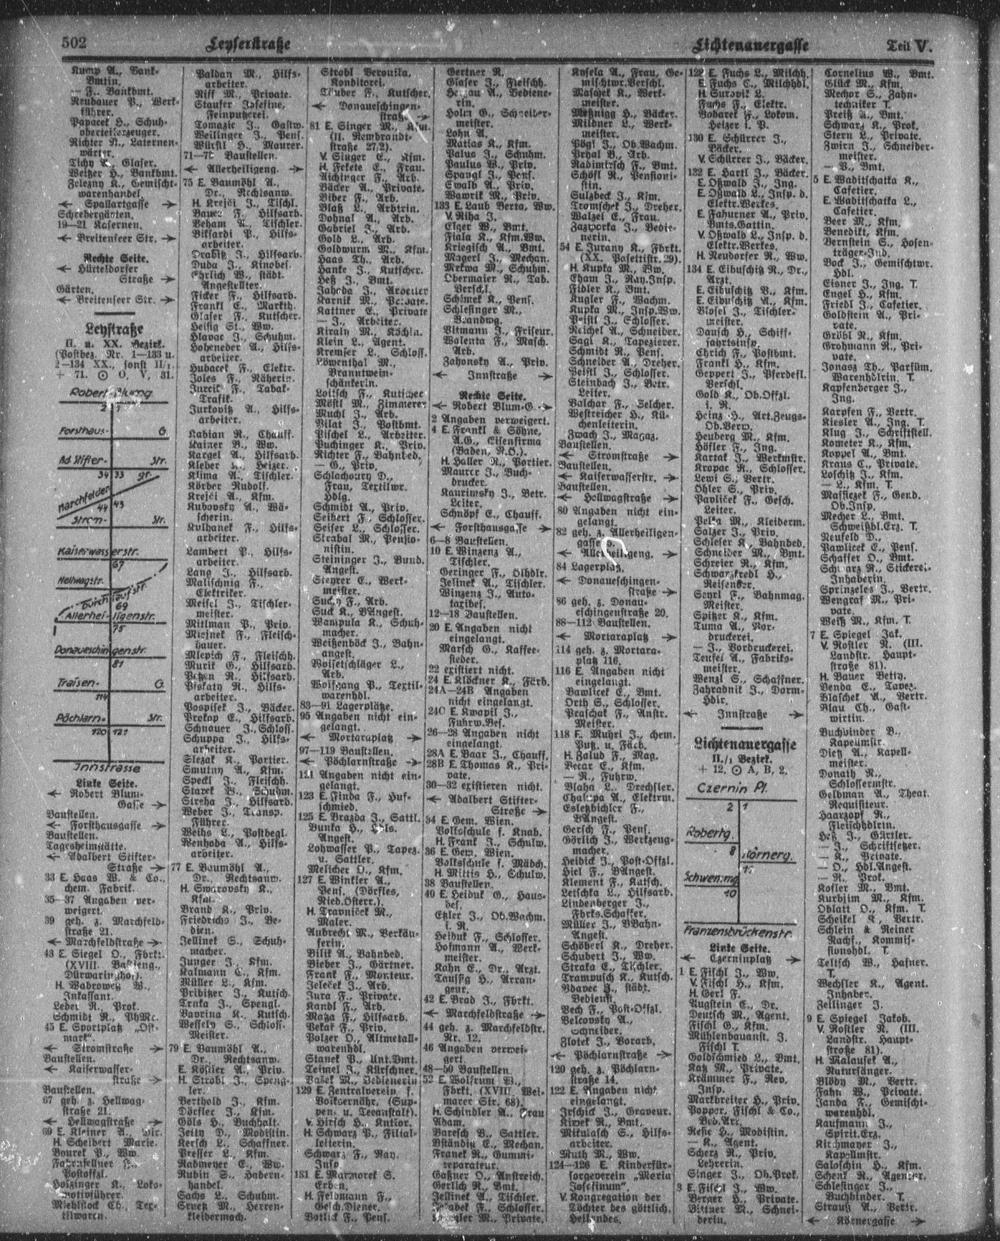 502
Leyserstraße
Lichtenauergasse
Teil V.
Kump A., Bank-
Bmtin.
— F., Bankbmt.
Neubauer P., Werk-
führer.
Papacek H., Schuh-
oberteilerzeuger.
Richter R., Laternen-
wärter.
Tichy L., Glaser.
Weitzer H., Bankbmt.
Zelezny K., Gemischt-
warenhandel
← Spallartgasse →
Schrebergärten.
19—21 Kasernen.
← Breitenseer Str. →
Rechte Seite.
← Hütteldorfer
Straße →
Gärten.
← Breitenseer Str. →
Leystraße
II. u. XX. Bezirk.
Robert Blumg
2 1
Forsthaus- G.
Ad. Stifter- Str.
34 33
Marchfelder str.
44 43
Strom- Str.
Kaiserwasserstr.
67
Hellwagstr.
Durchlaufstr.
69
Allerheiligenstr.
75
Donaueschingenstr.
81
Traisen- G.
114
Pöchlarn- Str.
120 121
Innstrasse
Linke Seite.
← Robert Blum-
Gasse →
Baustellen.
← Forsthausgasse →
Baustellen.
Tagesheimstätte.
← Adalbert Stifter-
Straße →
33 E. Haas W. & Co.,
chem. Fabrik.
35—37 Angaben ver-
weigert.
39 geh. z. Marchfeld-
straße 21.
← Marchfeldstraße →
43 E. Siegel O., Fbrkt.
H. Wabrowetz W.,
Inkassant.
Leder R., Prok.
Schmidt R., PhMr.
45 E. Sportplatz „Ost-
mark“.
← Stromstraße →
Baustellen.
← Kaiserwasser-
straße →
Baustellen.
67 geh. z. Hellwag-
straße 21.
← Hellwagstraße →
H. Scheibert Marie.
Bouret P., Ww.
Postoffzl.
Holzinger K., Loko-
motivführer.
Paldan M., Hilfs-
arbeiter.
Riff M., Private.
Staufer Josefine,
Feinputzerei.
Tomazic J., Gastw.
Weilinger J., Pens.
Würstl H., Maurer.
71—73 Baustellen.
← Allerheiligeng. →
75 E. Baumöhl A.,
Dr., Rechtsanw.
H. Krejci J., Tischl.
Beham A., Tischler.
arbeiter.
Drabitz J., Hilfsarb.
Duda J., Kinobes.
Angestellter.
Ficker F., Hilfsarb.
Frankl C., Markth.
Glaser F., Kutscher.
Heißig St., Ww.
Hlavac J., Schuhm.
Hoheneder A., Hilfs-
arbeiter.
Hubacek F., Elektr.
Joles F., Näherin.
Jurcik F., Tabak-
Trafik.
Jurkovitz A., Hilfs-
arbeiter.
Kabian R., Chauff.
Kainer B., Ww.
Kargel A., Hilfsarb.
Kleber J., Heizer.
Klima A., Tischler.
Körber Rudolf.
Krejci A., Kfm.
Kubovsky A., Wä-
scherin.
Kulhanek F., Hilfs-
arbeiter.
Lambert P., Hilfs-
arbeiter.
Lang J., Hilfsarb.
Malischnig F.,
Elektriker.
Meisel J., Tischler-
meister.
Mitlman P., Priv.
Mlejnek F., Fleisch-
hauer.
Muril G., Hilfsarb.
arbeiter.
Pospisek J., Bäcker.
Prokop E., Hilfsarb.
Schnauer J., Schloss.
Schuppa J., Hilfs-
arbeiter.
Slezak K., Portier.
Smutny A., Kfm.
Speckl J., Fleischh.
Streha J., Hilfsarb.
Führer.
Weihs L., Postbegl.
Wenhoda A., Hilfs-
arbeiter.
77 E. Baumöhl A.,
Dr., Rechtsanw.
H. Swarovsky K.,
Kfm.
Brand K., Priv.
Friedrichs J., Be-
dien.
Jellinek S., Schuh-
macher.
Junger J., Kfm.
Kalmann C., Kfm.
Müller L., Kfm.
Pribitzer J., Kutsch.
Trnka J., Spengl.
Vavrina K., Kutsch.
Wessely S., Schloss.-
Meister.
79 E. Baumöhl A.,
Dr., Rechtsanw.
E. Köstler A., Priv.
H. Strobl J., Speng-
ler.
Berthold J., Kfm.
Dörfler J., Kfm.
Göls H., Buchhalt.
Jeitz D., Modistin.
Kersch L., Schaffner.
Presser L., Kfm.
Radmeyer E., Ww.
Rubin S., Hadern-
handel.
Sachs L., Schuhm.
Smetz M., Herren-
kleidermach.
Strobl Veronika,
Konditorei.
Täuber F., Kutscher.
← Donaueschingen-
straße →
81 E. Singer M., Kfm.
(II. Rembrandt-
straße 27/2).
V. Singer C., Kfm.
H. Fekete C., Frau.
Aichinger F., Arb.
Bäcker A., Private.
Biber F., Arb.
Blatz L., Arbtrin.
Dohnal A., Arb.
Gabriel J., Arb.
Gold L., Arb.
Goldwurm M., Kfm.
Haas Th., Arb.
Hanke J., Kutscher.
Heß J., Bmt.
Jahoda J., Arbeiter
Karnik M., Private.
Kattner E., Private
— J., Arbeiter.
Kiraly M., Köchin.
Klein L., Agent.
Kreußer L., Schloss.
Löwenthal M.,
Branntwein-
schänkerin.
Loitsch F., Kutscher
Möstl M., Zimmerer
Muchl J., Arb.
Pilat J., Postbmt.
Pischel L., Arbeiter.
Puchinger K., Priv.
Richter F., Bahnbed.
— G., Priv.
Schlachoury D.,
Frau, Textilwr.
Hdlg.
Schmidt A., Priv.
Seibert F., Schlosser.
Seifer L., Schlosser.
Strahal M., Pensio-
nistin.
Steininger J., Bund.
Angest.
Steyrer C., Werk-
meister.
Suchy F., Arb.
Suck K., BAngest.
Wampula K., Schuh-
macher.
Weißenböck J., Bahn-
angest.
Woisetschläger L.,
Arb.
Wolfgang P., Textil-
warenhdl.
83—91 Lagerplätze.
95 Angaben nicht ein-
gelangt.
← Mortaraplatz →
97—119 Baustellen.
← Pöchlarnstraße →
121 Angaben nicht ein-
gelangt.
123 E. Finda F., Huf-
schmied.
125 E. Brazda J., Sattl.
Angest.
Lohwasser P., Tapez.
u. Sattler.
Melicher O., Kfm.
127 E. Winkler A.,
Pens. (Dörfles,
Nied.Österr.).
H. Travnicek M.,
Maler.
Aubrecht M., Verkäu-
ferin.
Bilik A., Bahnbed.
Bieber J., Gärtner.
Frank F., Monteur.
Jelecek J., Arb.
Jura F., Private.
Kandl F., Arb.
Maza F., Hilfsarb.
Pekar F., Priv.
Polzer O., Altmetall-
warenhdl.
Stanek P., Unt.Bmt.
Teimel J., Kürschner.
Vasek M., Bedienerin
129 E. Zentralverein f.
Volksernähr. (Sup-
pen- u. Teeanstalt).
V. Hirsch H., Kntlor.
H. Schwarz P., Filial-
leiterin.
Schwarz F., Ray.
Insp.
131 E. Matzhorek S.
Erben.
H. Feldmann F.,
Gesch.Diener.
Vorlick F., Pens.
Gertner R.
Glaser J., Fleischh.
rin.
Holni G., Schneider-
meister.
Lohn A.
Matias K., Kfm.
Palus J., Schuhm.
Paulus W., Priv.
Spangl J., Pens.
Swald A., Priv.
Wawrik M., Priv.
133 E. Laub Berta, Ww.
V. Riha J.
Elger W., Bmt.
Fiala K., Kfm.Ww.
Kriegisch A., Bmt.
Magerl J., Mechan.
Mrkwa M., Schuhm.
Obermaier R., Tab.
Verschl.
Schimek K., Pens.
Schlesinger M.,
Brandwg.
Vitmann J., Friseur.
Walenta F., Masch.
Arb.
Zahonsky A., Priv.
← Innstraße →
Rechte Seite.
← Robert Blum-G. →
2 Angaben verweigert.
4 E. Frankl & Söhne,
A.G., Eisenfirma
(Baden, N.Ö.).
H. Haller R., Portier.
Maurer J., Buch-
drucker.
Kaurinsky J., Betr.
Leiter.
Schnöpf E., Chauff.
← Forsthausgasse →
6—8 Baustellen.
10 E. Winzenz A.,
Tischler.
Geringer F., Ölhdlr.
Jelinek A., Tischler.
Winzenz J., Auto-
taxibes.
12—18 Baustellen.
20 E. Angaben nicht
eingelangt.
Marsch G., Kaffee-
sieder.
22 existiert nicht.
24 E. Klöckner K., Färb.
24A—24B Angaben
nicht eingelangt.
24C E. Kwapil J.,
Fuhrw.Bes.
26—28 Angaben nicht
eingelangt.
28A E. Baar J., Chauff.
28B E. Thomas K., Pri-
vate.
30—32 existieren nicht.
← Adalbert Stifter-
Straße →
34 E. Gem. Wien.
Volksschule f. Knab.
H. Frank J., Schulw.
36 E. Gem. Wien.
Volksschule f. Mädch.
H. Mittis H., Schulw.
38 Baustellen.
40 E. Heiduk G., Haus-
bes.
Exler J., Ob.Wachm.
i. R.
Heiduk F., Schlosser.
Hofmann A., Werk-
meister.
Kahn E., Dr., Arzt.
Taussig H., Arran-
geur.
42 E. Brod J., Fbrkt.
← Marchfeldstraße →
44 geh. z. Marchfeldstr.
Nr. 12.
46 Angaben verwei-
gert.
48—50 Baustellen.
52 E. Wolfrum W.,
Fbrkt. (XVIII. Wei-
marer Str. 68).
H. Schindler A., Frau
Adam.
Baresch B., Sattler.
Bständig E., Mechan.
Franek R., Gummi-
reparateur.
Gaßner O., Anstreich.
Gerlich R., Bmt.
Jellinek A., Tischler.
Kysela A., Frau, Ge-
mischtwr.Verschl.
Maschek K., Werk-
meister.
Meßnigg H., Bäcker.
Mildner L., Werk-
meister.
Pögl J., Ob.Wachm.
Prhal B., Arb.
Rabimirsch F., Bmt.
Schösl R., Pensioni-
stin.
Sulzbeck J., Kfm.
Tromschek J., Dreher.
Walzel E., Frau.
Zazvorka J., Bedie-
nerin.
54 E. Jurany K., Fbrkt.
(XX. Pasettistr. 29).
H. Kupka M., Ww.
Eham J., Ray.Insp.
Fidler K., Bmt.
Kugler F., Wachm.
Kupka M., Insp.Ww.
Peißl J., Schlosser.
Reichel A., Schneider.
Sagl K., Tapezierer.
Schmidt R., Pens.
Schneider A., Dreher.
Weißl J., Schlosser.
Steinbach J., Betr.
Leiter.
Walchar F., Selcher.
Westreicher H., Kü-
chenleiterin.
Zwach J., Magaz.
Baustellen.
← Stromstraße →
Baustellen.
← Kaiserwasserstr. →
Baustellen.
← Hellwagstraße →
80 Angaben nicht ein-
gelangt.
82 geh. z. Allerheiligen-
gasse
← Allerheiligeng. →
84 Lagerplatz.
← Donaueschingen-
straße →
86 geh. z. Donau-
eschingenstraße 20.
88—112 Baustellen.
← Mortaraplatz →
114 geh. z. Mortara-
platz 116.
116 E. Angaben nicht
eingelangt.
Pawlicek E., Bmt.
Orth S., Schlosser.
Praschak F., Anstr.
Meister.
118 E. Muhri J., chem.
Putz. u. Färb.
H. Zalud F., Mag.
Becar C., Kfm.
— R., Fuhrw.
Blaha L., Drechsler.
Chalupa A., Elektrm.
Eselzbichler F.,
BAngest.
Gersch F., Pens.
Görlich L., Werkzeug-
macher.
Heidick J., Post-Offzl.
Hiel F., BAngest.
Klement F., Kutsch.
Letschka L., Hilfsarb.
Lindenberger J.,
Fbrks.Schaffer.
Müller J., VBahn-
Angest.
Schöberl K., Dreher.
Schubert J., Ww.
Straka C., Tischler.
Trampusch K., Kutsch.
Vdavec J., städt.
Bedienst.
Wech F., Post-Offzl.
Welcovsky A.,
Schneider.
Zlotek J., Vorarb.
← Pöchlarnstraße →
120 geh. z. Pöchlarn-
straße 14.
122 E. Angaben nicht
eingelangt.
Irschick J., Graveur.
Kirst K., Bmt.
Mikulasch S., Hilfs-
arbeiter.
Muth M., Ww.
124—126 E. Kinderfür-
sorgeverein „Maria
Josefinum“.
V. Kongregation der
Töchter des göttlich.
Heilandes.
128 E. Fuchs L., Milchh.
E. Fuchs C., Milchhdl.
H. Surovik L.
Fuchs F., Elektr.
Bobarek F., Lokom.
Heizer i. P.
130 E. Schürrer J.,
Bäcker.
V. Schürrer J., Bäcker.
132 E. Hartl J., Bäcker.
E. Oßwald J., Ing.
E. Oßwald L., Insp. d.
Elektr.Werkes.
E. Fahurner A., Priv.
Bmts.Gattin.
V. Oßwald L., Insp. d.
Elektr.Werkes.
H. Neudorfer R., Ww.
134 E. Eibuschitz R., Dr.,
Arzt.
E. Eibuschitz B., Kfm.
E. Eibuschitz A., Kfm.
Blosel J., Tischler-
meister.
Dausch H., Schiff-
fahrtsinsp.
Ehrich F., Postbmt.
Frankl H., Kfm.
Geppert J., Pferdefl.
Verschl.
Gold K., Ob.Offzl.
i. R.
Heinz H., Art.Zeugs-
Ob.Verw.
Heuberg M., Kfm.
Höfler F., Ing.
Kartak J., Werkmstr.
Kropac K., Schlosser.
Lewi S., Vertr.
Ohler S., Priv.
Pavlicek F., Gesch.
Leiter.
Pelka M., Kleiderm.
Salzer J., Priv.
Schleser K., Bahnbed.
Schneider M., Bmt.
Schreier R., Kfm.
Schwarzkredl H.,
Reisender.
Seyrl F., Bahnmag.
Meister.
Spitzer K., Kfm.
Tuma A., Vor-
druckerei.
— J., Vordruckerei.
Teusel A., Fabriks-
meister.
Wenzl S., Schaffner.
Zahradnik J., Darm-
Hdlr.
← Innstraße →
Lichtenauergasse
II./1 Bezirk.
+ 12, ⊙ A, B, 2,
Czernin Pl.
2 1
Robertg.
8
Körnerg.
Schwemmg
10
Franzensbrückenstr.
Linke Seite.
← Czerninplatz →
1 E. Fischl J., Ww.
V. Fischl H., Kfm.
H. Gerl F.
Augstein C., Dr.
Deutsch M., Agent.
Fischl G., Kfm.
Mühlenbauanst. J.
Fischl T.
Goldschmied L., Bmt.
Katz M., Private.
Krammer F., Rev.
Insp.
Markbreiter H., Priv.
Popper, Fischl & Co.,
Bed.Art.
Resie H., Modistin.
— K., Agent.
Scherz R., Priv.
Lehrerin.
Singer J., Ob.Prok.
3 E. Fischl J., Ww.
Berger H., Private.
Bittner M., Schnei-
derin.
Cornelius W., Bmt.
Glück M., Kfm.
Mechor S., Zahn-
techniker T.
Preiß A., Bmt.
Schwarz K., Prok.
Stern L., Private.
Zwirn J., Schneider-
meister.
— B., Bmt.
5 E. Wabitschatka K.,
Cafetier.
E. Wabitschatka L.,
Cafetier.
Beer M., Kfm.
Benedikt, Kfm.
Bernstein S., Hosen-
träger-Ind.
Bock J., Gemischtwr.
Hdl.
Eisner J., Ing. T.
Engel H., Kfm.
Friedl J., Cafetier.
Goldstein A., Pri-
vate.
Größl R., Kfm.
Grohmann R., Pri-
vate.
Jonasz Th., Parfüm.
Warenhdlrin. T.
Kapfenberger J.,
Ing.
Karpfen F., Vertr.
Kiesler A., Ing. T.
Klug J., Schriftstell.
Kometer K., Kfm.
Koppel A., Bmt.
Kraus C., Private.
Loschitz J., Kfm.
— L., Kfm. T.
Massiczek F., Gend.
Ob.Insp.
Mecher L., Bmt.
Schweißbl.Erz. T.
Neufeld D.
Pawlicek E., Pens.
Schaffer O., Bmt.
Schwarz R., Stickerei-
Inhaberin.
Sprinzeles J., Vertr.
Wengraf M., Pri-
vate.
Weiß M., Kfm. T.
7 E. Spiegel Jak.
V. Rostler N. (III.
Landstr. Haupt-
straße 81).
H. Bauer Betty.
Benda E., Tapez.
Blaschek A., Vertr.
Blau Ch., Gast-
wirtin.
Buchbinder B.,
Kapellmstr.
Dietz A., Kapell-
meister.
Donath R.,
Schlossermstr.
Geldman A., Theat.
Requisiteur.
Haarzopf R.,
Fleischhdlrin.
Heß J., Gürtler.
— J., Schriftsetzer.
— K., Private.
— O., Hdl.Angest.
— R., Prok.
Kosler M., Bmt.
Kurhjim M., Kfm.
Oblatt O., Kfm. T.
Scheikel K., Vertr.
Schlein & Reiner
Nachf., Kommis-
sionshdl. T.
Teltsch W., Hafner.
T.
Wechsler K., Agent.
Inhaber.
Zellinger J.
9 E. Spiegel Jakob.
V. Rostler N. (III.
Landstr. Haupt-
straße 81).
H. Malausek A.,
Naturfänger.
Blödy M., Vertr.
Fahn W., Private.
Janda F., Gemischt-
warenhdl.
Kaufmann J.,
Spirit.Erz.
Kirchmayer J.,
Kapellmstr.
Saloschin H., Kfm.
Schenk R., Agentur.
Schlesinger J.,
Buchbinder. T.
Strauß A., Vertr.
← Körnergasse →